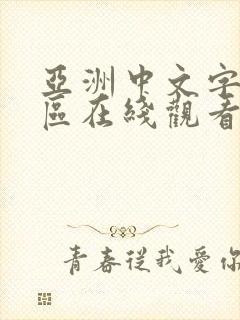 亞洲中文字
區在綫觀看
青春從我愛你